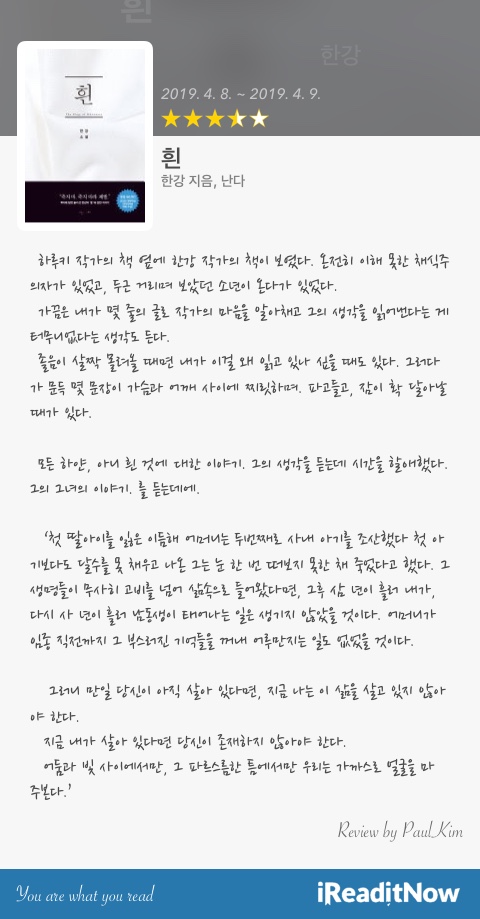 흰
한강
흰
한강
소설
2019. 4. 8. ~ 2019. 4. 9.
흰
한강 지음, 난다
하루키 작가의 책 옆에 한강 작가의 책이 보였다. 온전히 이해 못한 채식주
의자가 있었고, 두근 거리며 보았던 소년이 온다가 있었다.
가끔은 내가 몇 줄의 글로 작가의 마음을 알아채고 그의 생각을 읽어번다는 게
터무니없다는 생각도 든다.
졸음이 살짝 몰려올 때면 내가 이걸 왜 읽고 있나 싶을 때도 있다. 그러다
가 문득 몇 문장이 가슴과 어깨 사이에 찌릿하며. 파고들고, 잠이 확 달아날
때가 있다.
모든 하얀, 아니 흰 것에 대한 이야기. 그의 생각을 듣는데 시간을 할애했다.
그의 그녀의 이야기. 를 듣는데에.
‘첫 딸아이를 잃은 이듬해 어머니는 두번째로 사내 아기를 조산했다 첫 아
기보다도 달수를 못 채우고 나온 그는 눈 한 번 떠보지 못한 채 죽었다고 했다. 그
생명들이 무사히 고비를 넘어 삶속으로 들어왔다면, 그후 삼 년이 흘러 내가,
다시 사 년이 흘러 남동생이 태어나는 일은 생기지 않았을 것이다. 어머니가
임종 직전까지 그 부스러진 기억들을 꺼내 어루만지는 일도 없었을 것이다.
그러니 만일 당신이 아직 살아 있다면, 지금 나는 이 삶을 살고 있지 않아
야 한다.
지금 내가 살아 있다면 당신이 존재하지 않아야 한다.
어둠과 빛 사이에서만, 그 파르스름한 틈에서만 우리는 가까스로 얼굴을 마
주본다.’
Review by PaulKim
You are what you read
iReaditNow